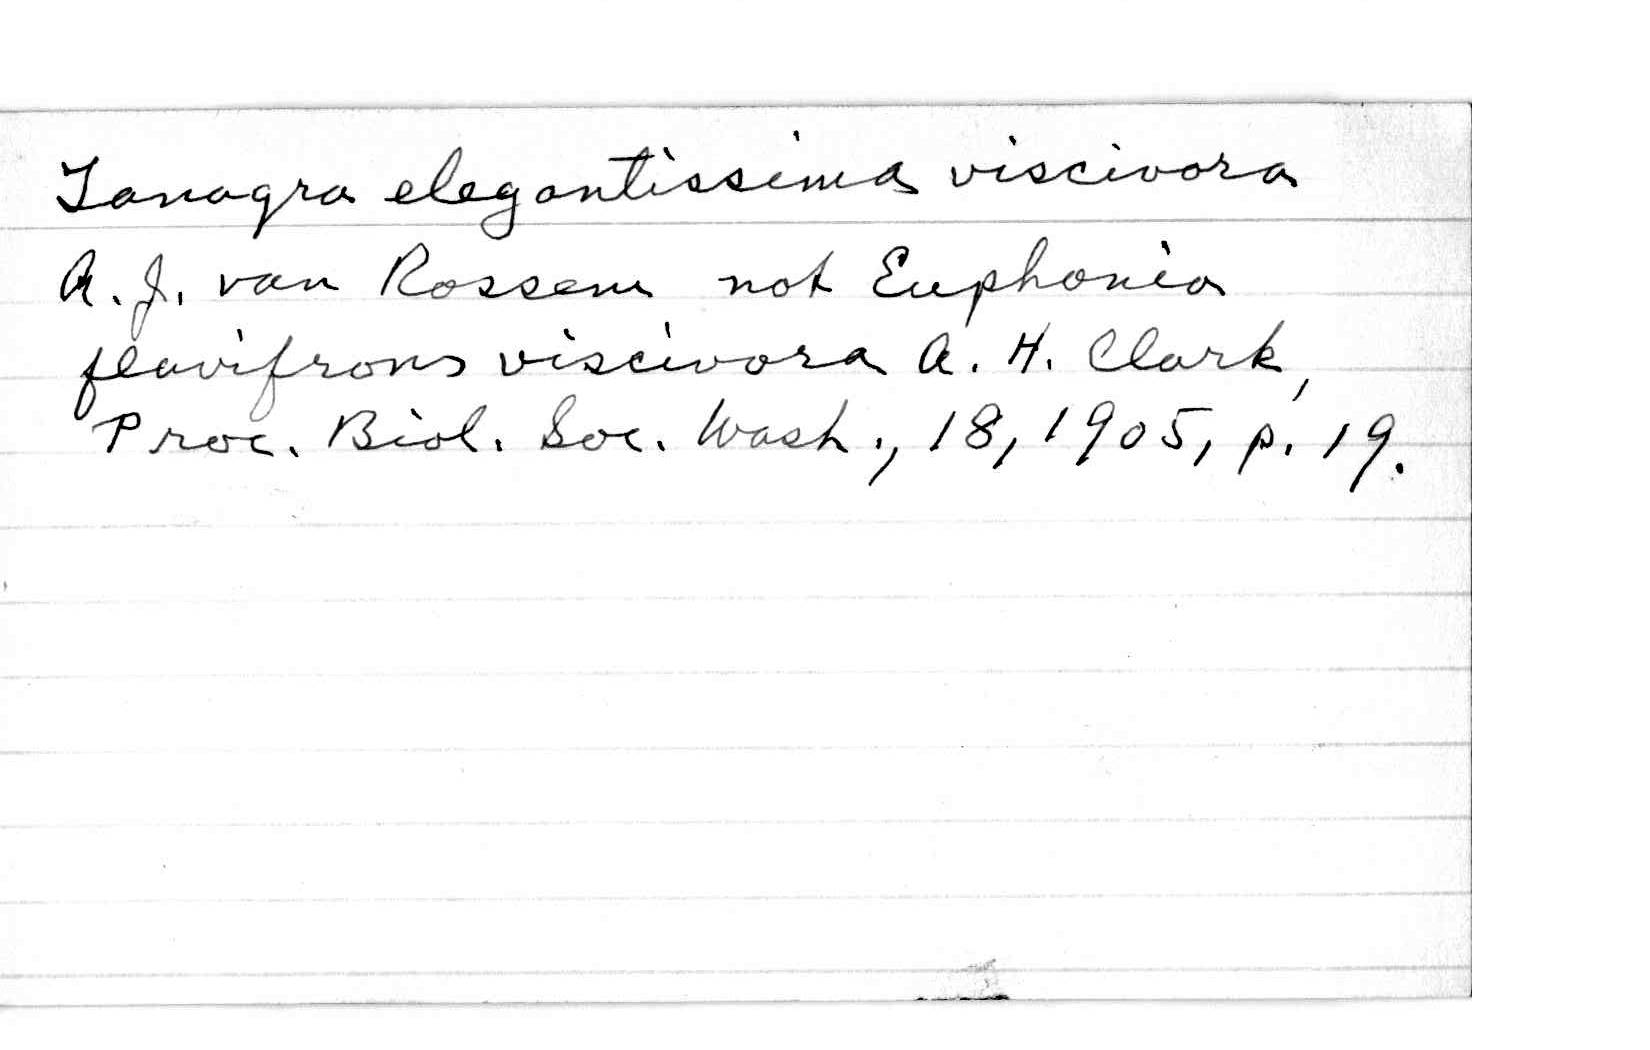 Tanagra elegantissima viscivora
A. J. van Rossem not Euphonia
flavifrons viscivora A. H. Clark,
Proc. Biol. Soc. Wash., 18, 1905, p. 19.